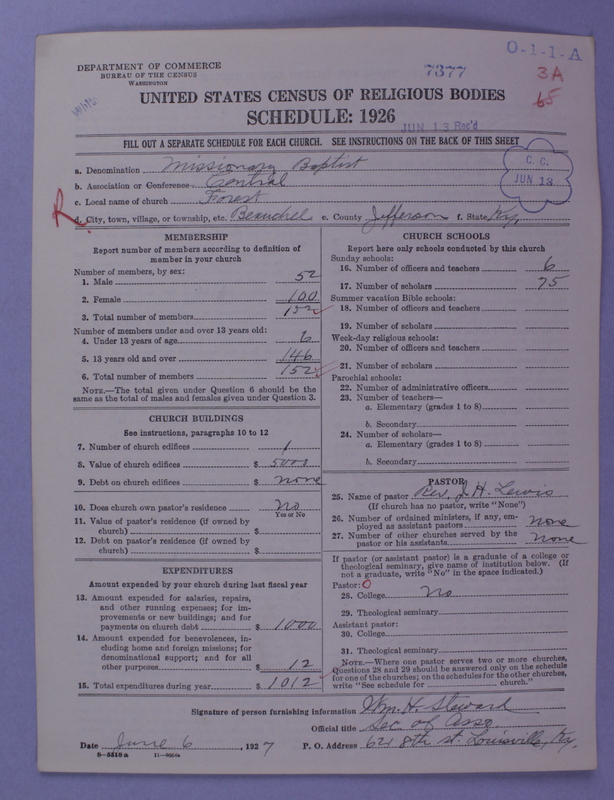 O-1-1-A
DEPARTMENT OF COMMERCE
BUREAU OF THE CENSUS
WASHINGTON
7377
3A
65
UNITED STATES CENSUS OF RELIGIOUS BODIES
SCHEDULE: 1926
JUN 13 Rec'd
FILL OUT A SEPARATE SCHEDULE FOR EACH CHURCH. SEE INSTRUCTIONS ON THE BACK OF THIS SHEET
C. C.
JUN 13
a. Denomination Missionary Baptist
b. Association or Conference Central
c. Local name of church Forest
R
d. City, town, village, or township, etc. Beuchel e. County Jefferson f. State Ky.
MEMBERSHIP
Report number of members according to definition of
member in your church
Number of members, by sex:
1. Male 52
2. Female 100
3. Total number of members 152
Number of members under and over 13 years old:
4. Under 13 years of age 6
5. 13 years old and over 146
6. Total number of members 152
NOTE.—The total given under Question 6 should be the
same as the total of males and females given under Question 3.
CHURCH BUILDINGS
See instructions, paragraphs 10 to 12
7. Number of church edifices 1
8. Value of church edifices $ 5000
9. Debt on church edifices $ none
10. Does church own pastor's residence no
Yes or No
11. Value of pastor's residence (if owned by
church) $
12. Debt on pastor's residence (if owned by
church) $
EXPENDITURES
Amount expended by your church during last fiscal year
13. Amount expended for salaries, repairs,
and other running expenses; for im-
provements or new buildings; and for
payments on church debt $ 1000
14. Amount expended for benevolences, in-
cluding home and foreign missions; for
denominational support; and for all
other purposes $ 12
15. Total expenditures during year $ 1012
CHURCH SCHOOLS
Report here only schools conducted by this church
Sunday schools:
16. Number of officers and teachers 6
17. Number of scholars 75
Summer vacation Bible schools:
18. Number of officers and teachers
19. Number of scholars
Week-day religious schools:
20. Number of officers and teachers
21. Number of scholars
Parochial schools:
22. Number of administrative officers
23. Number of teachers—
a. Elementary (grades 1 to 8)
b. Secondary
24. Number of scholars—
a. Elementary (grades 1 to 8)
b. Secondary
PASTOR
25. Name of pastor Rev. J. H. Lewis
(If church has no pastor, write "None")
26. Number of ordained ministers, if any, em-
ployed as assistant pastors none
27. Number of other churches served by the
pastor or his assistants none
If pastor (or assistant pastor) is a graduate of a college or
theological seminary, give name of institution below. (If
not a graduate, write "No" in the space indicated.)
Pastor: O
28. College No
29. Theological seminary
Assistant pastor:
30. College
31. Theological seminary
NOTE.—Where one pastor serves two or more churches,
Questions 28 and 29 should be answered only on the schedule
for one of the churches; on the schedules for the other churches,
write "See schedule for church."
Signature of person furnishing information Wm. H. Steward
Official title Sec. of Asso.
Date June 6, 1927 P. O. Address 621 8th st. Louisville, Ky.
8-5518a